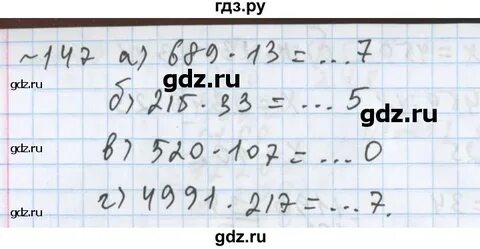 гдз.ру
~147 а) 689·13=...7
gdz.ru gdz.ru
б) 215·33=...5
gdz.ru
в) 520·107=...0
gdz.ru
г) 4991·217=...7.
gdz.ru gdz.ru